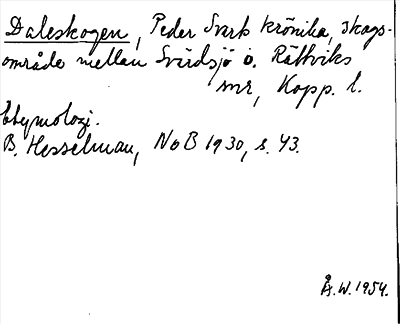 Daleskogen, Peder Svarts krönika, skogs-
område mellan Svärdsjö o. Rättviks
snr, Kopp. l.
Etymologi.
B. Hesselman, NoB 1930, s. 43.
Å.W. 1954.